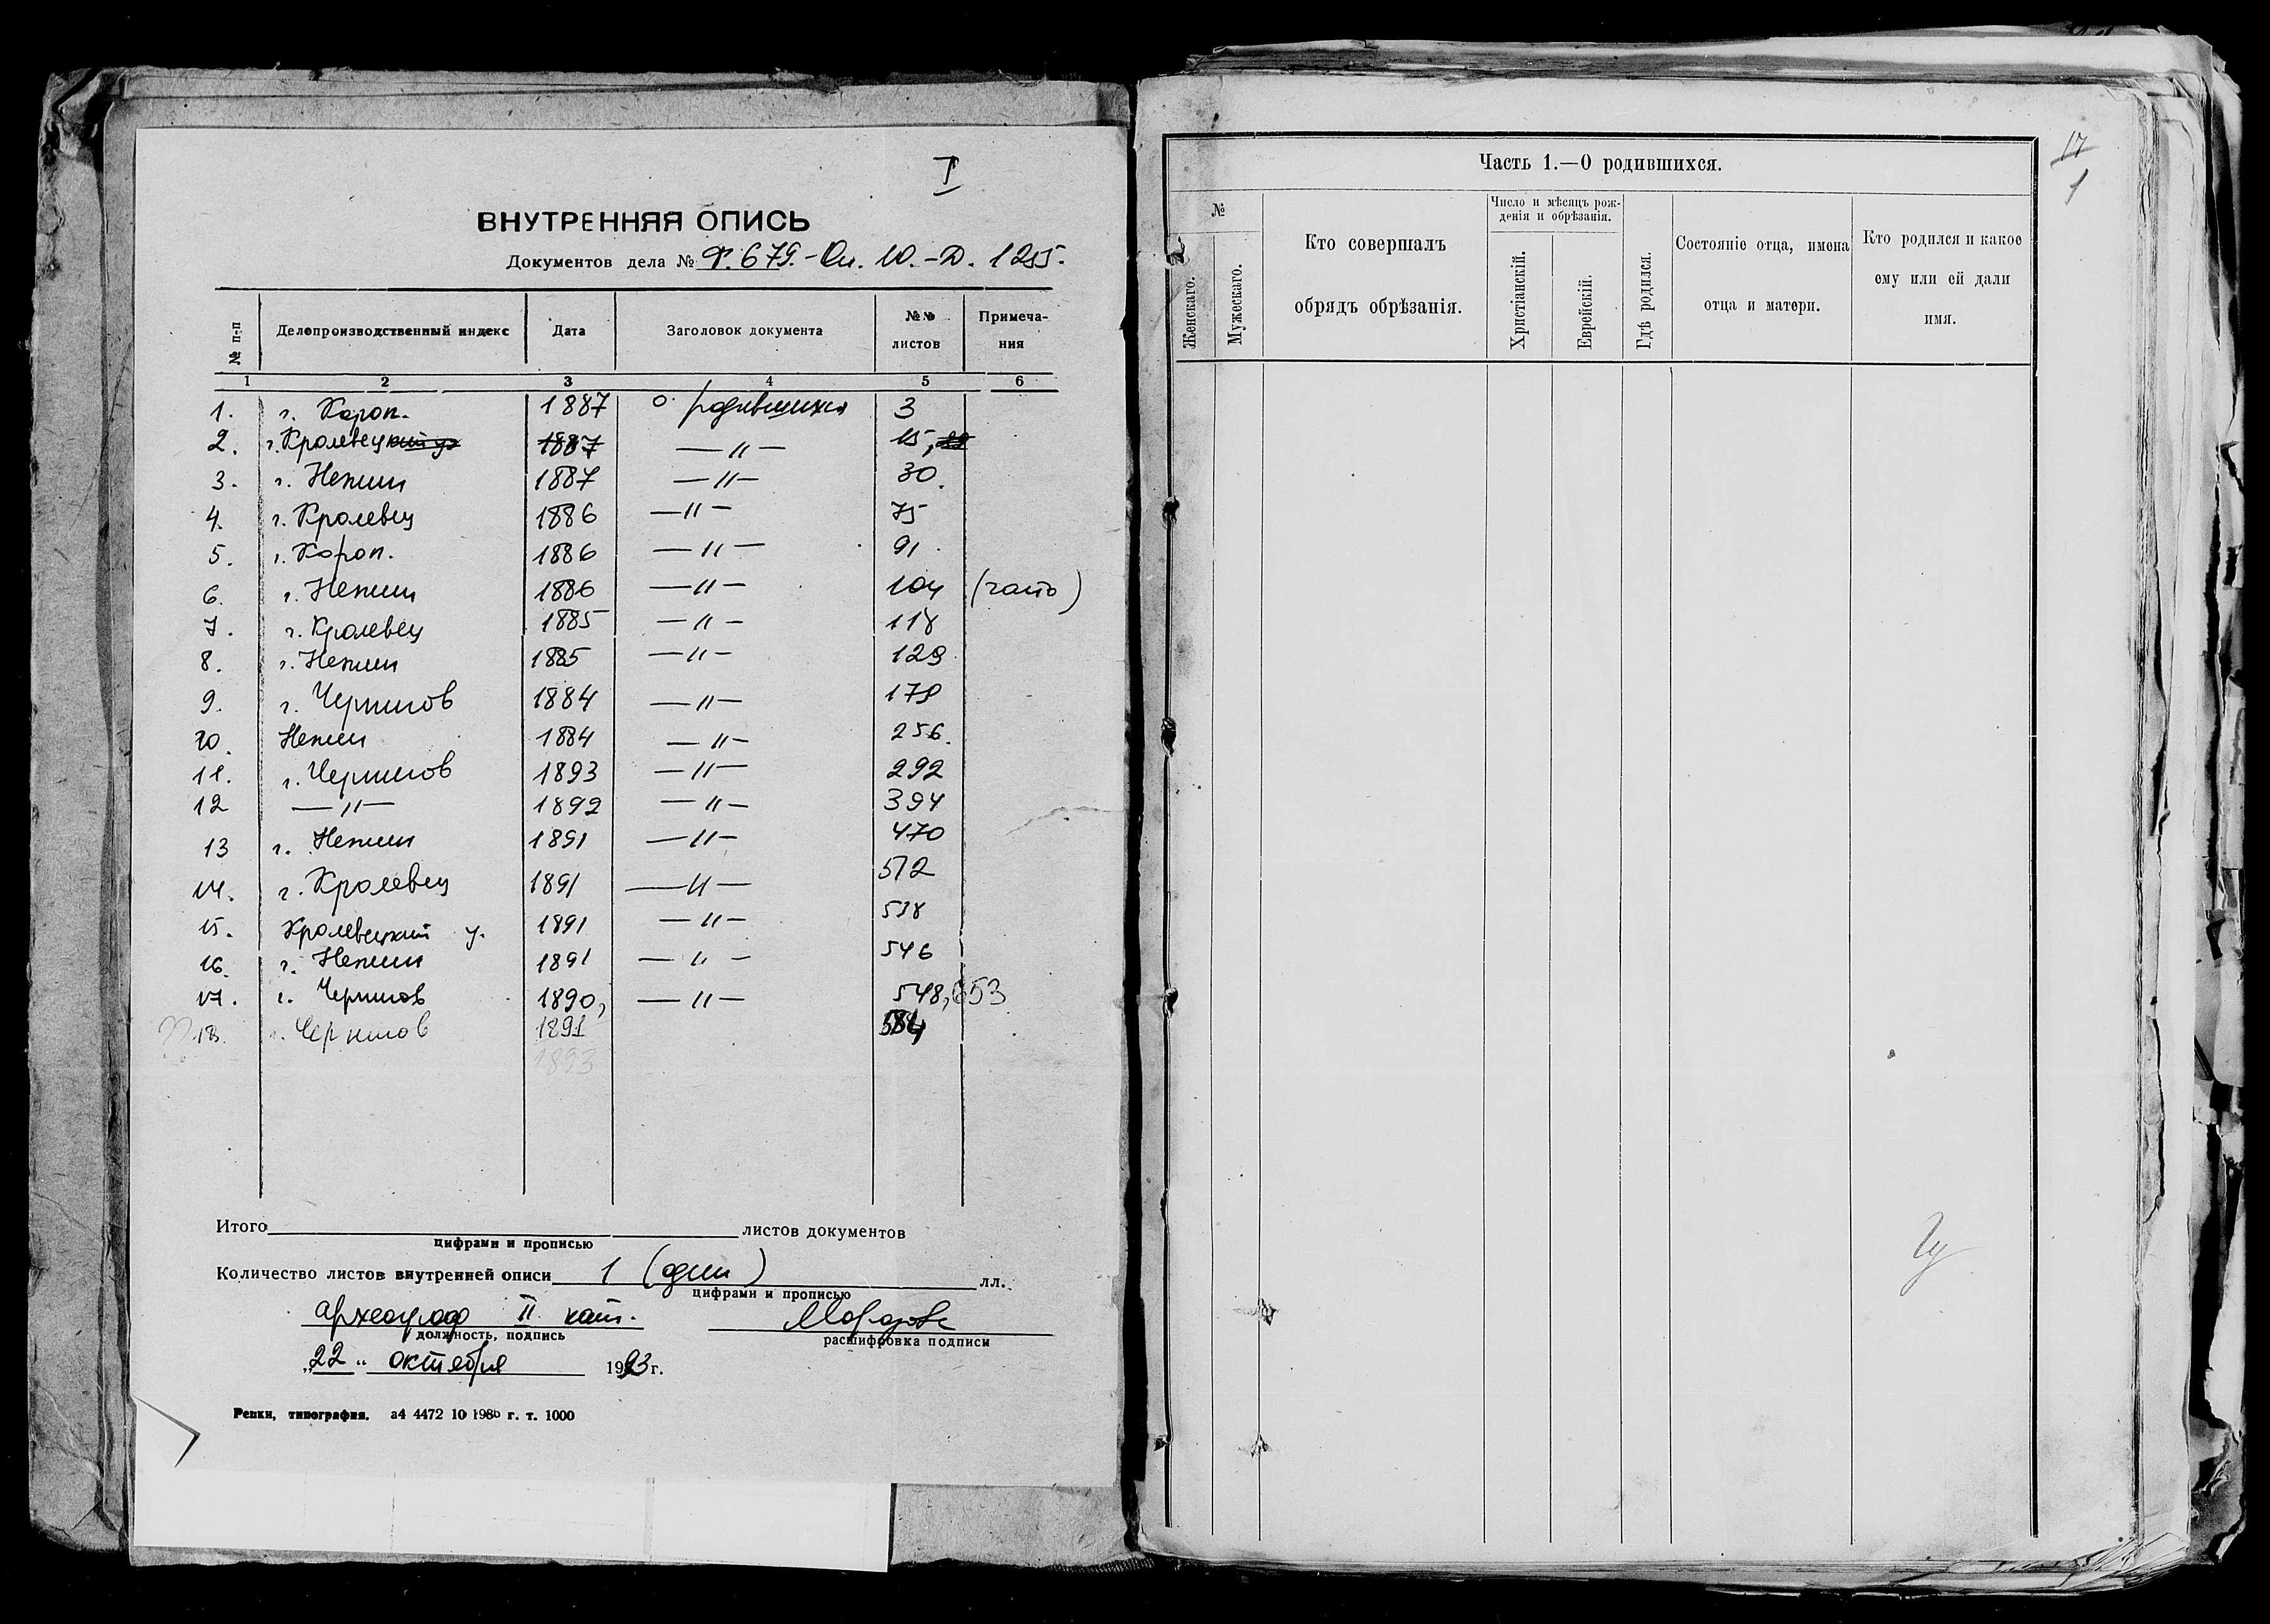 I
ВНУТРЕННЯЯ ОПИСЬ
Документов дела № Ф. 679.-Оп. 10.-Д. 1255.
№ п-п Делопроизводственный индекс Дата Заголовок документа №№ листов Примеча-ния
1 2 3 4 5 6
1. г. Короп. 1887 о родившихся 3
2. г. Кролевецкий у. 1887 —"— 15,
3. г. Нежин 1887 —"— 30.
4. г. Кролевец 1886 —"— 75
5. г. Короп. 1886 —"— 91.
6. г. Нежин 1886 —"— 104 (часть)
7. г. Кролевец 1885 —"— 118
8. г. Нежин 1885 —"— 129
9. г. Чернигов 1884 —"— 179
10. Нежин 1884 —"— 256.
11. г. Чернигов 1893 —"— 292
12 —"— 1892 —"— 394
13 г. Нежин 1891 —"— 470
14. г. Кролевец 1891 —"— 512
15. Кролевецкий у. 1891 —"— 538
16. г. Нежин 1891 —"— 546
17. г. Чернигов 1890, —"— 548, 653
18. г. Чернигов 1891 584
1893
Итого листов документов
цифрами и прописью
Количество листов внутренней описи 1 (один) лл.
цифрами и прописью
археограф II кат.
должность, подпись
расшифровка подписи
„22" октября 1993 г.
Репки, типография. а4 4472 10 1986 г. т. 1000
17
1
Часть 1.—О родившихся.
№
Женскаго.
Мужескаго.
Кто совершалъ
обрядъ обрѣзанія.
Число и мѣсяцъ рож-
денія и обрѣзанія.
Христіанскій.
Еврейскій.
Гдѣ родился.
Состояніе отца, имена
отца и матери.
Кто родился и какое
ему или ей дали
имя.